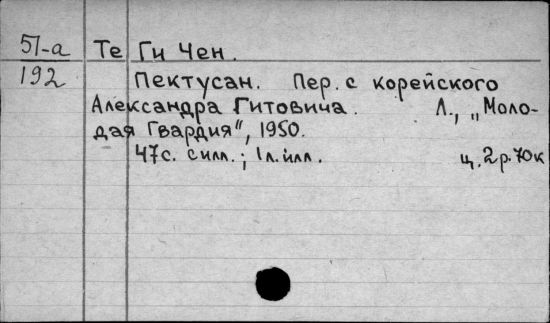 51-а Те Ги Чен.
192 Пектусан. Пер. с корейского
Александра Гитовича. Л., „Моло-
дая Гвардия", 1950.
47с. с илл.; 1л. илл. ц. 2р. 70к